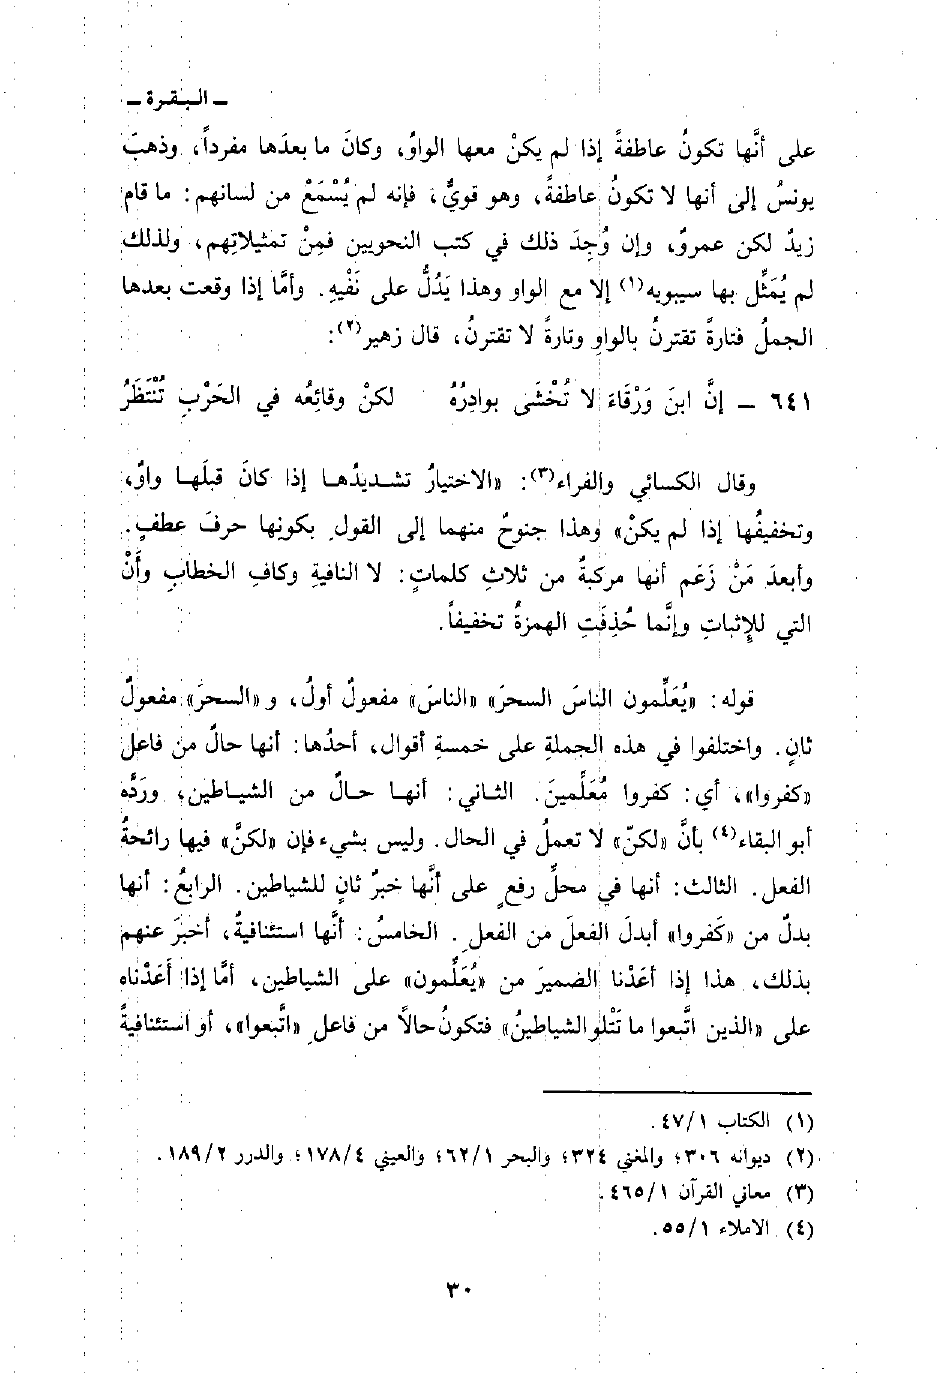 ـ البقرة ـ
على أنَّها تكونُ عاطفةً إذا لم يكنْ معها الواوُ، وكانَ ما بعدَها مفرداً، وذهبَ
يونسُ إلى أنها لا تكونُ عاطفةً، وهو قويٌّ، فإنه لم يُسْمَعْ من لسانهم: ما قام
زيدٌ لكن عمروٌ، وإن وُجِدَ ذلك في كتب النحويين فمِنْ تمثيلاتِهم، ولذلك
لم يُمَثِّل بها سيبويه(١) إلا مع الواو وهذا يَدُلُّ على نَفْيِهِ. وأمَّا إذا وقعت بعدها
الجملُ فتارةً تقترنُ بالواوِ وتارةً لا تقترنُ، قال زهير(٢):
٦٤١ ـ إنَّ ابنَ وَرْقَاءَ لا تُخْشَى بوادِرُهُ لكنْ وقائِعُه في الحَرْبِ تُنْتَظَرُ
وقال الكسائي والفراء(٣): «الاختيارُ تشديدُها إذا كانَ قبلَها واوٌ،
وتخفيفُها إذا لم يكنْ» وهذا جنوحٌ منهما إلى القولِ بكونِها حرفَ عطفٍ.
وأبعدَ مَنْ زَعَم أنها مركبةٌ من ثلاثِ كلماتٍ: لا النافيةِ وكافِ الخطابِ وأَنْ
التي للإِثباتِ وإنَّما حُذِفَتِ الهمزةُ تخفيفاً.
قوله: «يُعَلِّمون الناسَ السحرَ» «الناسَ» مفعولٌ أولُ، و «السحرَ» مفعولٌ
ثانٍ. واختلفوا في هذه الجملةِ على خمسةِ أقوال، أحدُها: أنها حالٌ من فاعلِ
«كفروا»، أي: كفروا مُعَلِّمينَ. الثاني: أنها حالٌ من الشياطين، ورَدَّه
أبو البقاء(٤) بأنَّ «لكنّ» لا تعملُ في الحال. وليس بشيء فإن «لكنَّ» فيها رائحةُ
الفعل. الثالث: أنها في محلِّ رفعٍ على أنَّها خبرٌ ثانٍ للشياطين. الرابعُ: أنها
بدلٌ من «كَفروا» أبدلَ الفعلَ من الفعلِ. الخامسُ: أنَّها استئنافيةٌ، أخبرَ عنهم
بذلك، هذا إذا أعَدْنا الضميرَ من «يُعَلِّمون» على الشياطين، أمَّا إذا أَعَدْناه
على «الذين اتَّبعوا ما تَتْلو الشياطينُ» فتكونُ حالاً من فاعلِ «اتَّبعوا»، أو استئنافيةً
(١) الكتاب ٤٧/١.
(٢) ديوانه ٣٠٦؛ والمغني ٣٢٤؛ والبحر ٦٢/١؛ والعيني ١٧٨/٤؛ والدرر ١٨٩/٢.
(٣) معاني القرآن ٤٦٥/١.
(٤) الاملاء ٥٥/١.
٣٠